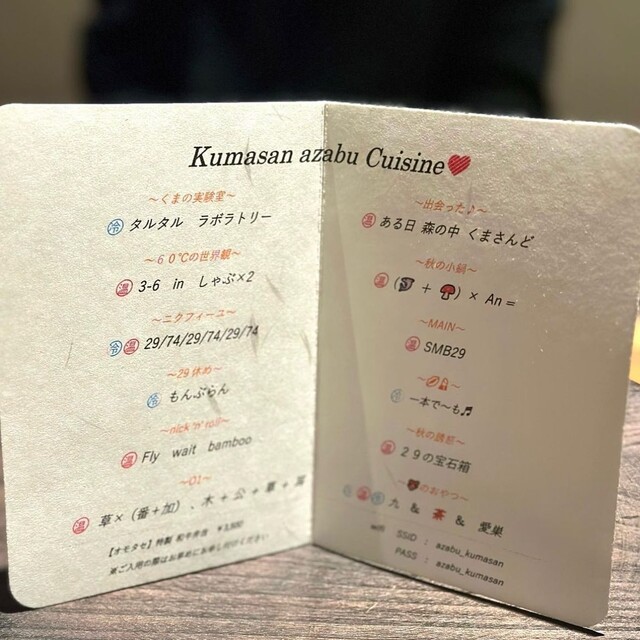 Kumasan azabu Cuisine
～くまの実験室～
冷 タルタル ラボラトリー
～60℃の世界観～
温 3-6 in しゃぶ×2
～ニクフィーユ～
冷 温 29/74/29/74/29/74
～29休め～
冷 もんぶらん
～nick'n'roll～
温 Fly wait bamboo
～O1～
温 草×（番+加）、木+公+
【オモタセ】特製 和牛弁当 ¥3,800
※ご入用の際はお早めにお申し付けください
～出会った♪～
温 ある日 森の中 くまさんど
～秋の小鍋～
温 ( + ) × An =
～MAIN～
温 SMB29
冷 一本で～も♬
～秋の誘惑～
温 29の宝石箱
のおやつ～
冷 温 冷 九 & 茶 & 愛巣
wifi SSID : azabu_kumasan
PASS : azabu_kumasan